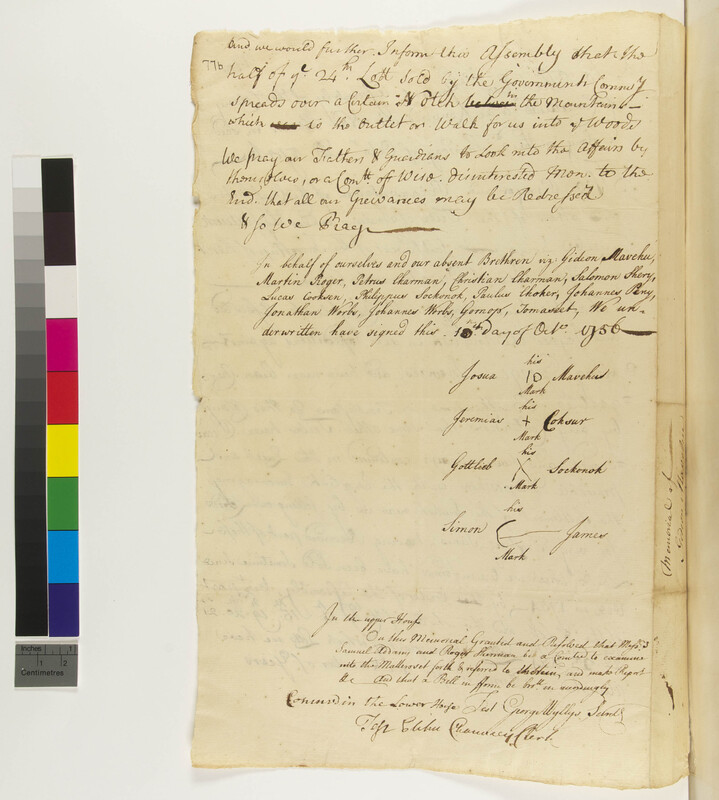 And we would further Inform this Assembly that the
77b
half of ye 24th Lott sold by the Government Commtt
spreads over a Certain Notch in the Mountain
which is the Outlet or Walk for us into ye Woods
We pray our Fathers & Guardians to Look into the Affairs by
themselves, or a Comtt of Wise Disinterested Men to the
End that all our Greivances may be Redress'd
& so We Pray
In behalf of ourselves and our absent Brethren viz Gideon Mavehu,
Martin Roger, Petrus Charman, Christian Charman, Salomon Shery,
Lucas Cocksen, Philippus Sockonok, Paulus Choker, Johannes Pery,
Jonathan Worbs, Johannes Worbs, Gornop, Tomasset, We un-
derwritten have signed this 10th Day of Octr 1756
his
Josua Mavehus
Mark
his
Jeremias + Cohsur
Mark
his
Gottlieb X Sockonok
Mark
his
Simon James
Mark
In the upper House
On this Memorial Granted and Resolved that Messrs
Samuel Adams and Roger Sherman be a Comtee to examine
into the Matters set forth & referred to therein, and make Report
&c And that a Bill in forme be brot in accordingly
Concurd in the Lower House Test George Wyllys Secret
Test Elihu Chauncey Clerk
Memorial of
Inches 1
1 2
Centimetres